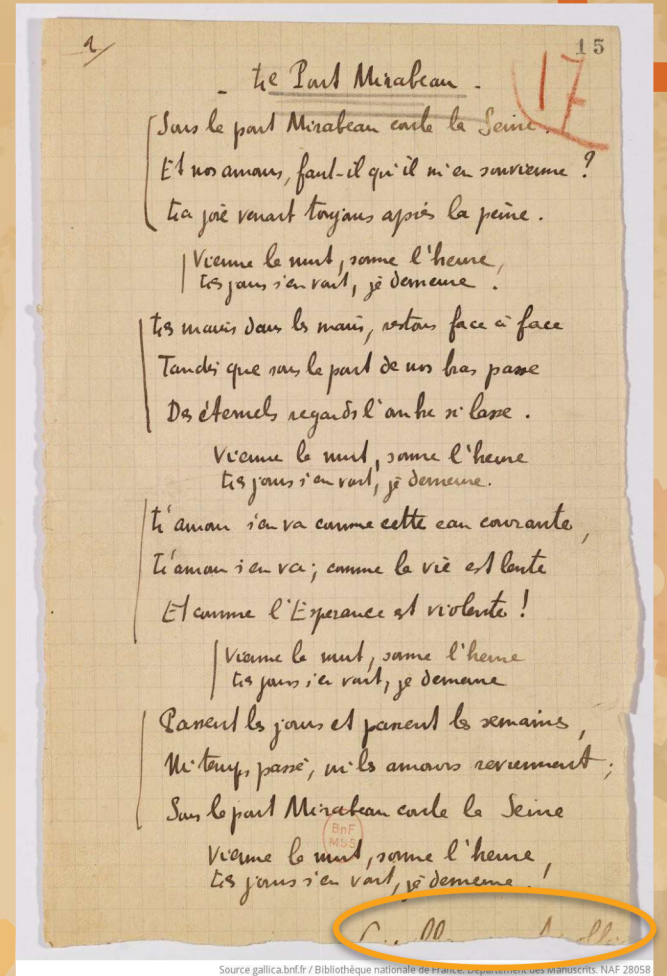 2
15
17
Le Pont Mirabeau
Sous le pont Mirabeau coule la Seine.
Et nos amours, faut-il qu'il m'en souvienne ?
La joie venait toujours après la peine.
Vienne la nuit, sonne l'heure,
Les jours s'en vont, je demeure.
Les mains dans les mains, restons face à face
Tandis que sous le pont de nos bras passe
Des éternels regards l'onde si lasse.
Vienne la nuit, sonne l'heure
Les jours s'en vont, je demeure.
L'amour s'en va comme cette eau courante,
L'amour s'en va ; comme la vie est lente
Et comme l'Espérance est violente !
Vienne la nuit, sonne l'heure
Les jours s'en vont, je demeure
Passent les jours et passent les semaines,
Ni temps passé, ni les amours reviennent ;
Sous le pont Mirabeau coule la Seine
BnF
MSS
Vienne la nuit, sonne l'heure,
Les jours s'en vont, je demeure !
Source gallica.bnf.fr / Bibliothèque nationale de France. Département des Manuscrits. NAF 28058